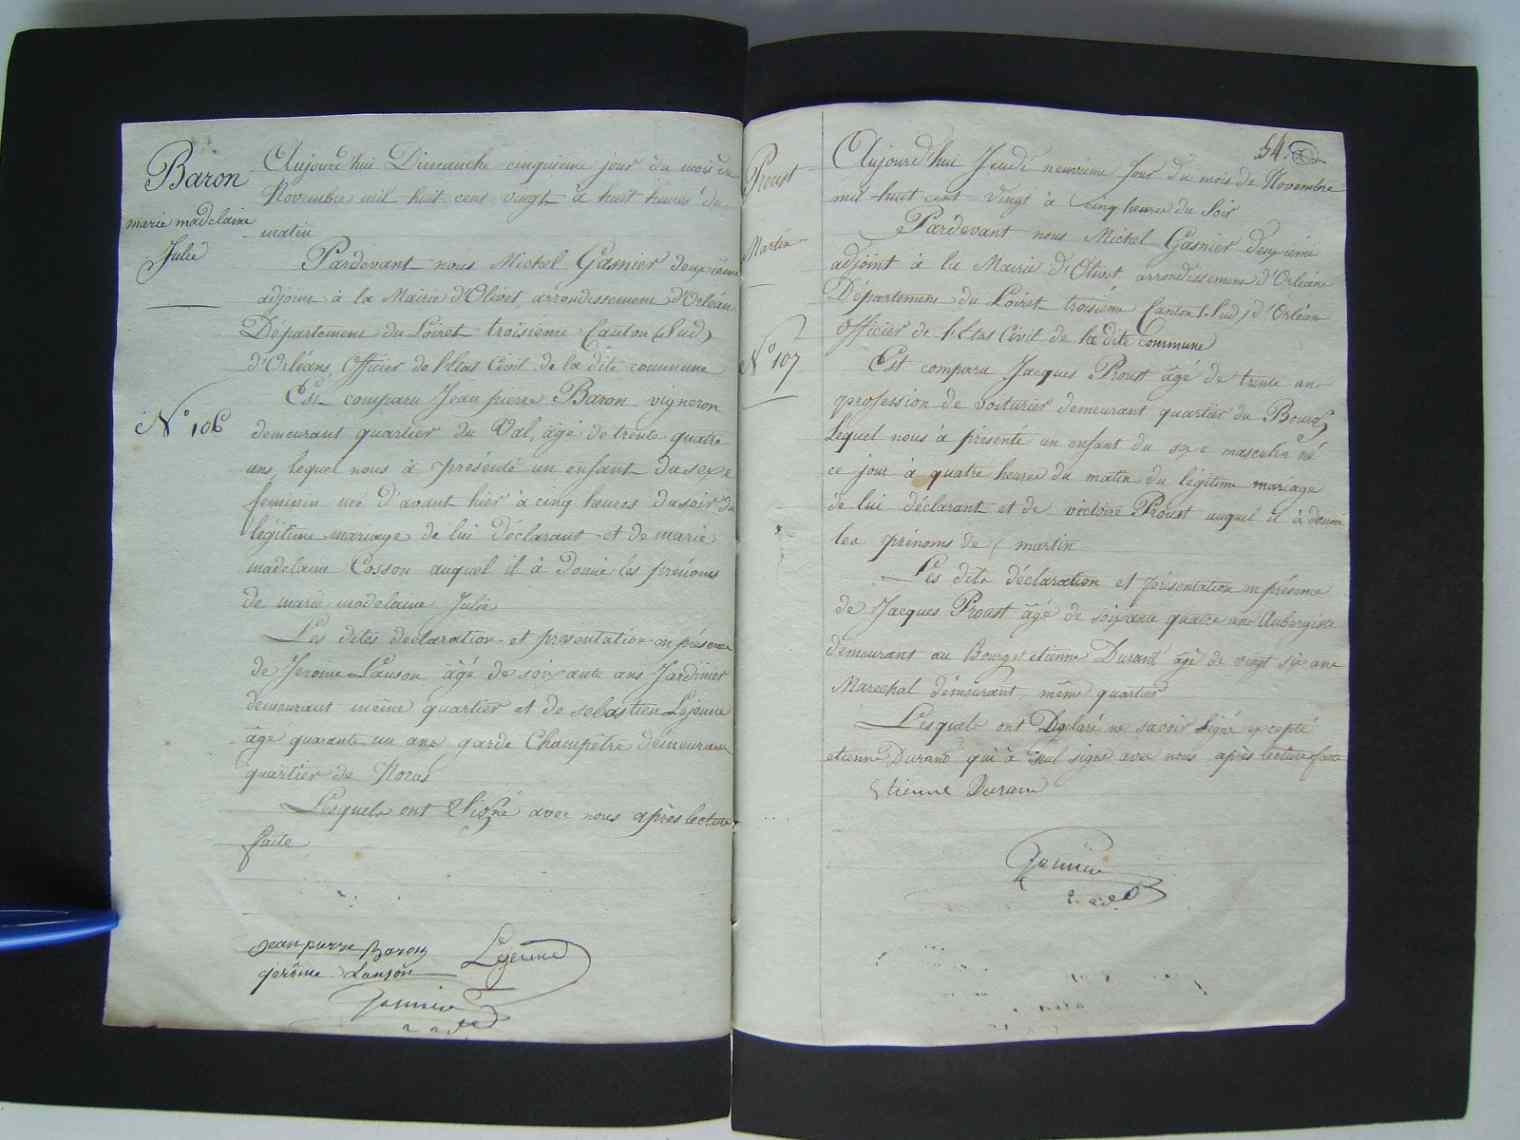 Baron
marie madelaine
Julie
N° 106
Aujourd'hui Dimanche cinquieme jour du mois de
Novembre mil huit cent vingt à huit heures du
matin
Pardevant nous Michel Gasnier deuxieme
adjoint à la Mairie d'Olivet arrondissement d'Orléans
Département du Loiret troisieme Canton (Sud)
d'Orléans, officier de l'Etat Civil de la dite commune
Est comparu Jean pierre Baron vigneron
demeurant quartier du Val, âgé de trente quatre
ans lequel nous à présenté un enfant du sexe
feminin né d'avant hier à cinq heures du soir du
légitime mariage de lui déclarant et de marie
madelaine Cosson auquel il à donné les prénoms
de marie madelaine Julie
Les dites declaration et presentation en présence
de Jerome Lanson âgé de soixante ans Jardinier
demeurant même quartier et de sebastien Lejeune
âgé quarante un ans garde Champêtre demeurant
quartier de
Lesquels ont Signé avec nous après lecture
faite
jean pierre Baron
jerôme Lanson
Lejeune
Gasnier
54
Proust
Martin
N° 107
Aujourd'hui Jeudi neuvieme Jour du mois de Novembre
mil huit cent vingt à cinq heures du Soir
Pardevant nous Michel Gasnier deuxieme
adjoint à la Mairie d'Olivet arrondissement d'Orléans
Département du Loiret troisieme Canton (Sud) d'Orléans
officier de l'Etat Civil de la dite commune
Est comparu Jacques Proust âgé de trente ans
profession de voiturier demeurant quartier du Bourg
Lequel nous à présenté un enfant du sexe masculin né
ce jour à quatre heures du matin du légitime mariage
de lui déclarant et de victoire Proust auquel il à donné
les prénoms de martin
Les dites déclaration et présentation en présence
de Jacques Proust âgé de soixante quatre ans Aubergiste
demeurant au Bourg et etienne Durand âgé de vingt six ans
Marechal demeurant même quartier
Lesquels ont Déclaré ne savoir Signé excepté
etienne Durand qui à Seul signé avec nous après lecture faite
Etienne Durand
Gasnier